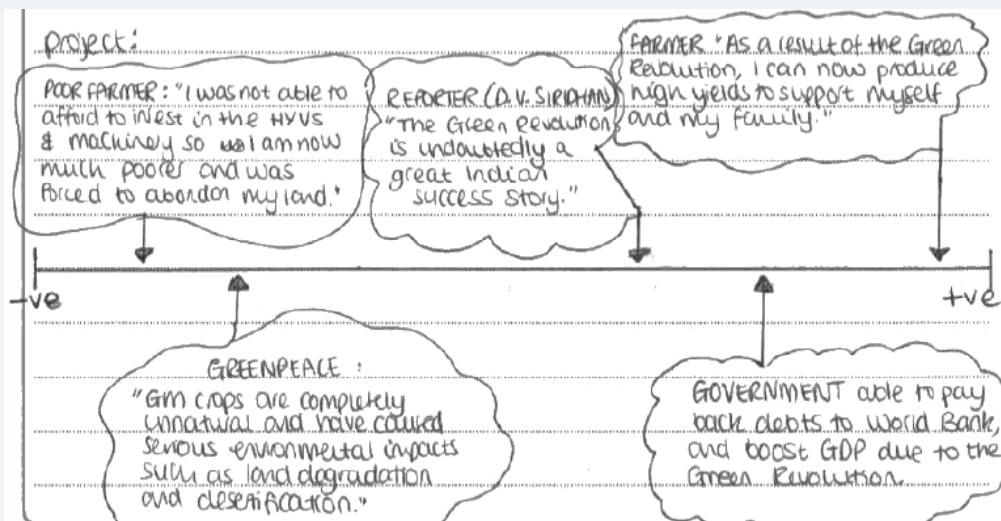 project:
POOR FARMER: "I was not able to
afford to invest in the HYVS
& machinery so I am now
much poorer and was
forced to abandon my land."
REPORTER (D.V. SIRIDHAN)
"The Green Revolution
is undoubtedly a
great Indian
success story."
FARMER "As a result of the Green
Revolution, I can now produce
high yields to support myself
and my family."
-ve
+ve
GREENPEACE :
"Gm crops are completely
unnatural and have caused
serious environmental impacts
such as land degradation
and desertification."
GOVERNMENT able to pay
back debts to World Bank,
and boost GDP due to the
Green Revolution.